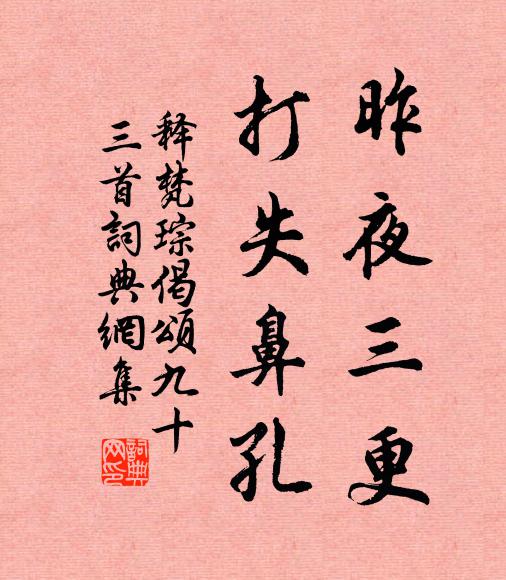 昨夜三更
打失鼻孔
释梵琮偈頌九十
三首詞典網集
詞典
网印